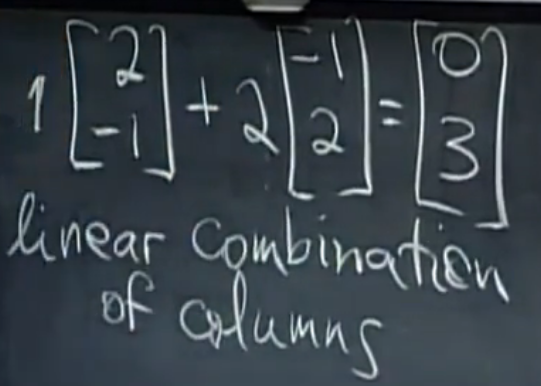 1 [2 -1] + 2 [-1 2] = [0 3]
linear combination
of columns